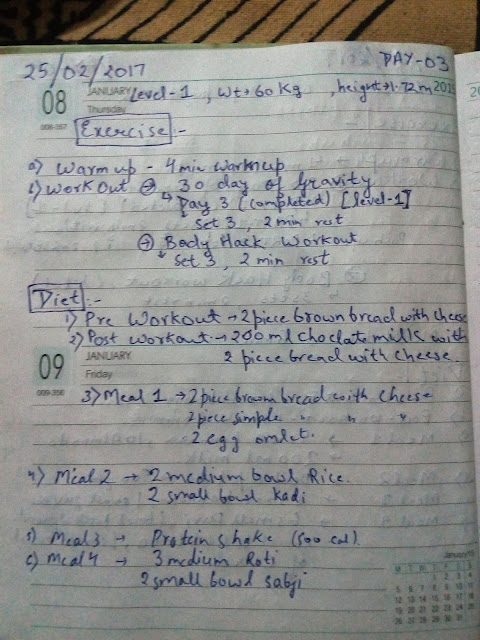 25/02/2017 DAY-03
08 JANUARY Level-1, Wt→60 Kg, height→1.72m 2015
Thursday
008-357
Exercise:-
a) Warm up - 4 min warmup
b) Workout → 30 day of gravity
↳ Day 3 (completed) [level-1]
Set 3, 2 min rest
→ Body Hack Workout
Set 3, 2 min rest
Diet:-
1) Pre Workout → 2 piece brown bread with cheese
2) Post Workout → 200 ml choclate milk with
2 piece bread with cheese.
09 JANUARY
Friday
009-356
3) Meal 1 → 2 piece brown bread with cheese
2 piece simple " " "
2 egg omlet.
4) Meal 2 → 2 medium bowl Rice.
2 small bowl kadi
5) Meal 3 → Protein shake (500 cal)
6) Meal 4 → 3 medium Roti
2 small bowl sabji
January
M T W T F S S
1 2 3 4
5 6 7 8 9 10 11
12 13 14 15 16 17 18
19 20 21 22 23 24 25
26 27 28 29 30 31